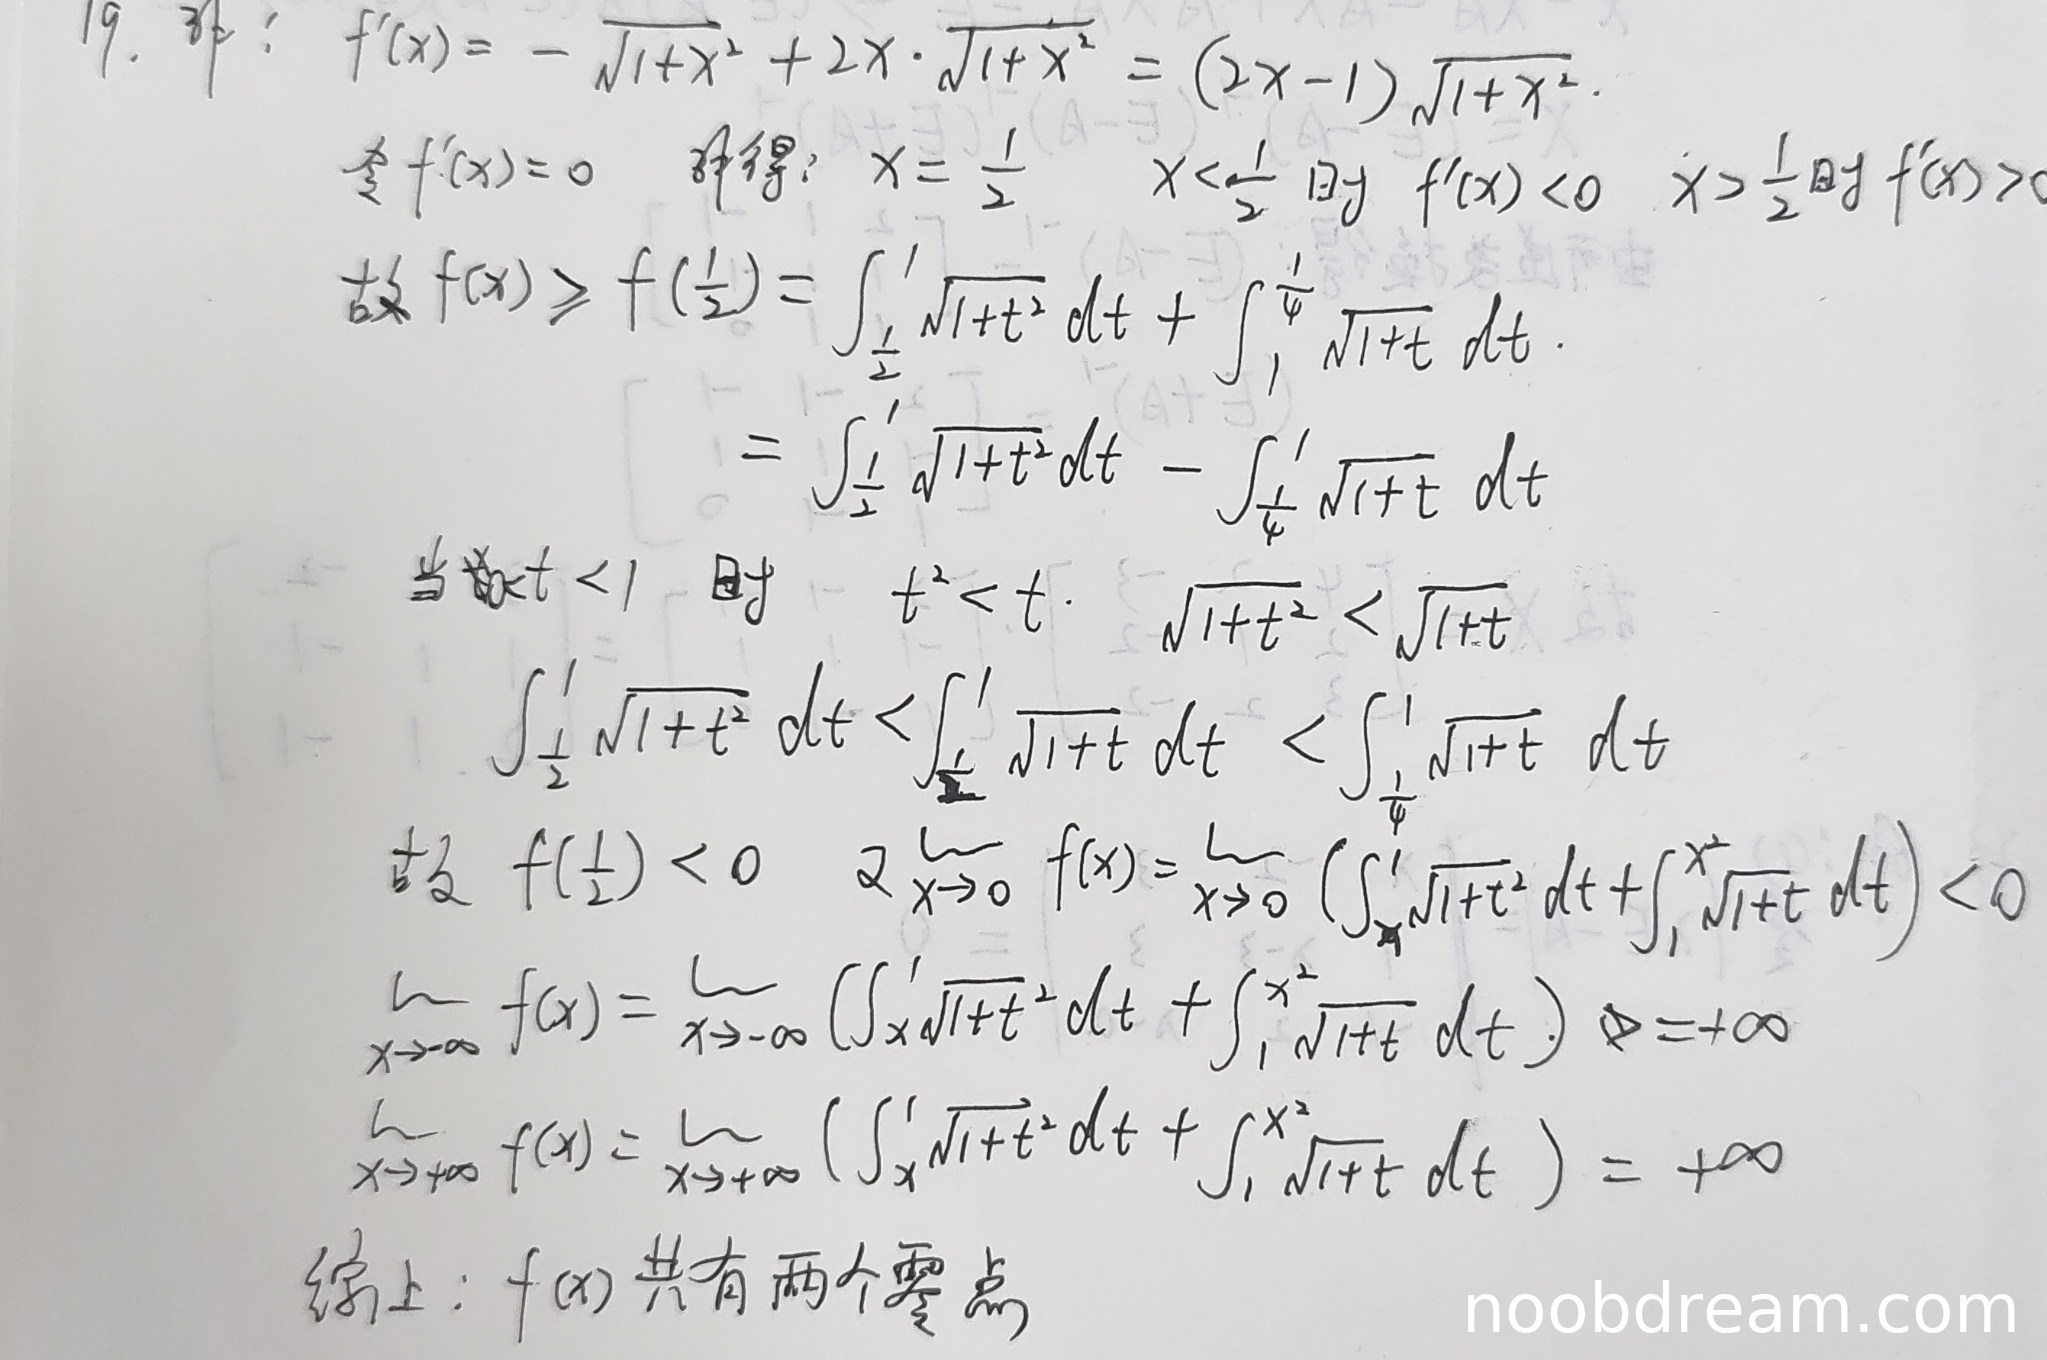 19. 解: f'(x) = - √(1+x²) + 2x · √(1+x²) = (2x-1)√(1+x²).
令 f'(x) = 0 解得: x = 1/2 x < 1/2 时 f'(x) < 0 x > 1/2 时 f'(x) > 0
故 f(x) ≥ f(1/2) = ∫_{1/2}^{1} √(1+t²) dt + ∫_{1}^{1/4} √(1+t) dt.
= ∫_{1/2}^{1} √(1+t²) dt - ∫_{1/4}^{1} √(1+t) dt
当 0<t<1 时 t² < t. √(1+t²) < √(1+t)
∫_{1/2}^{1} √(1+t²) dt < ∫_{1/2}^{1} √(1+t) dt < ∫_{1/4}^{1} √(1+t) dt
故 f(1/2) < 0 又 lim_{x→0} f(x) = lim_{x→0} (∫_{x}^{1} √(1+t²) dt + ∫_{1}^{x²} √(1+t) dt) < 0
lim_{x→-∞} f(x) = lim_{x→-∞} (∫_{x}^{1} √(1+t²) dt + ∫_{1}^{x²} √(1+t) dt) = +∞
lim_{x→+∞} f(x) = lim_{x→+∞} (∫_{x}^{1} √(1+t²) dt + ∫_{1}^{x²} √(1+t) dt) = +∞
综上: f(x) 共有两个零点
noobdream.com